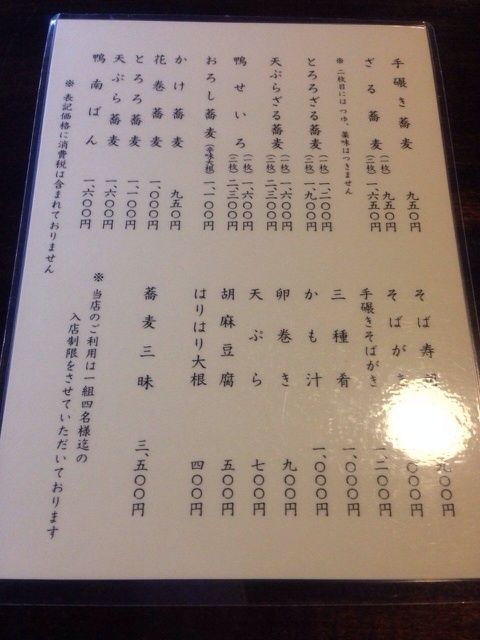 手碾き蕎麦 九五〇円
ざる蕎麦 (一枚) 九五〇円
(二枚) 一、六五〇円
※ 二枚目にはつゆ、薬味はつきません
とろろざる蕎麦 (一枚) 一、二〇〇円
(二枚) 一、九〇〇円
天ぷらざる蕎麦 (一枚) 一、六〇〇円
(二枚) 二、三〇〇円
鴨せいろ (一枚) 一、六〇〇円
(二枚) 二、三〇〇円
おろし蕎麦 (辛味大根) 一、一〇〇円
かけ蕎麦 九五〇円
花巻蕎麦 一、〇〇〇円
とろろ蕎麦 一、一〇〇円
天ぷら蕎麦 一、六〇〇円
鴨南ばん 一、六〇〇円
※ 表記価格に消費税は含まれておりません
そば寿 九〇〇円
そばがき 〇〇〇円
手碾きそばがき 一、二〇〇円
三種肴 一、〇〇〇円
かも汁 一、〇〇〇円
卵巻き 九〇〇円
天ぷら 七〇〇円
胡麻豆腐 五〇〇円
はりはり大根 四〇〇円
蕎麦三昧 三、五〇〇円
※ 当店のご利用は一組四名様迄の
入店制限をさせていただいております